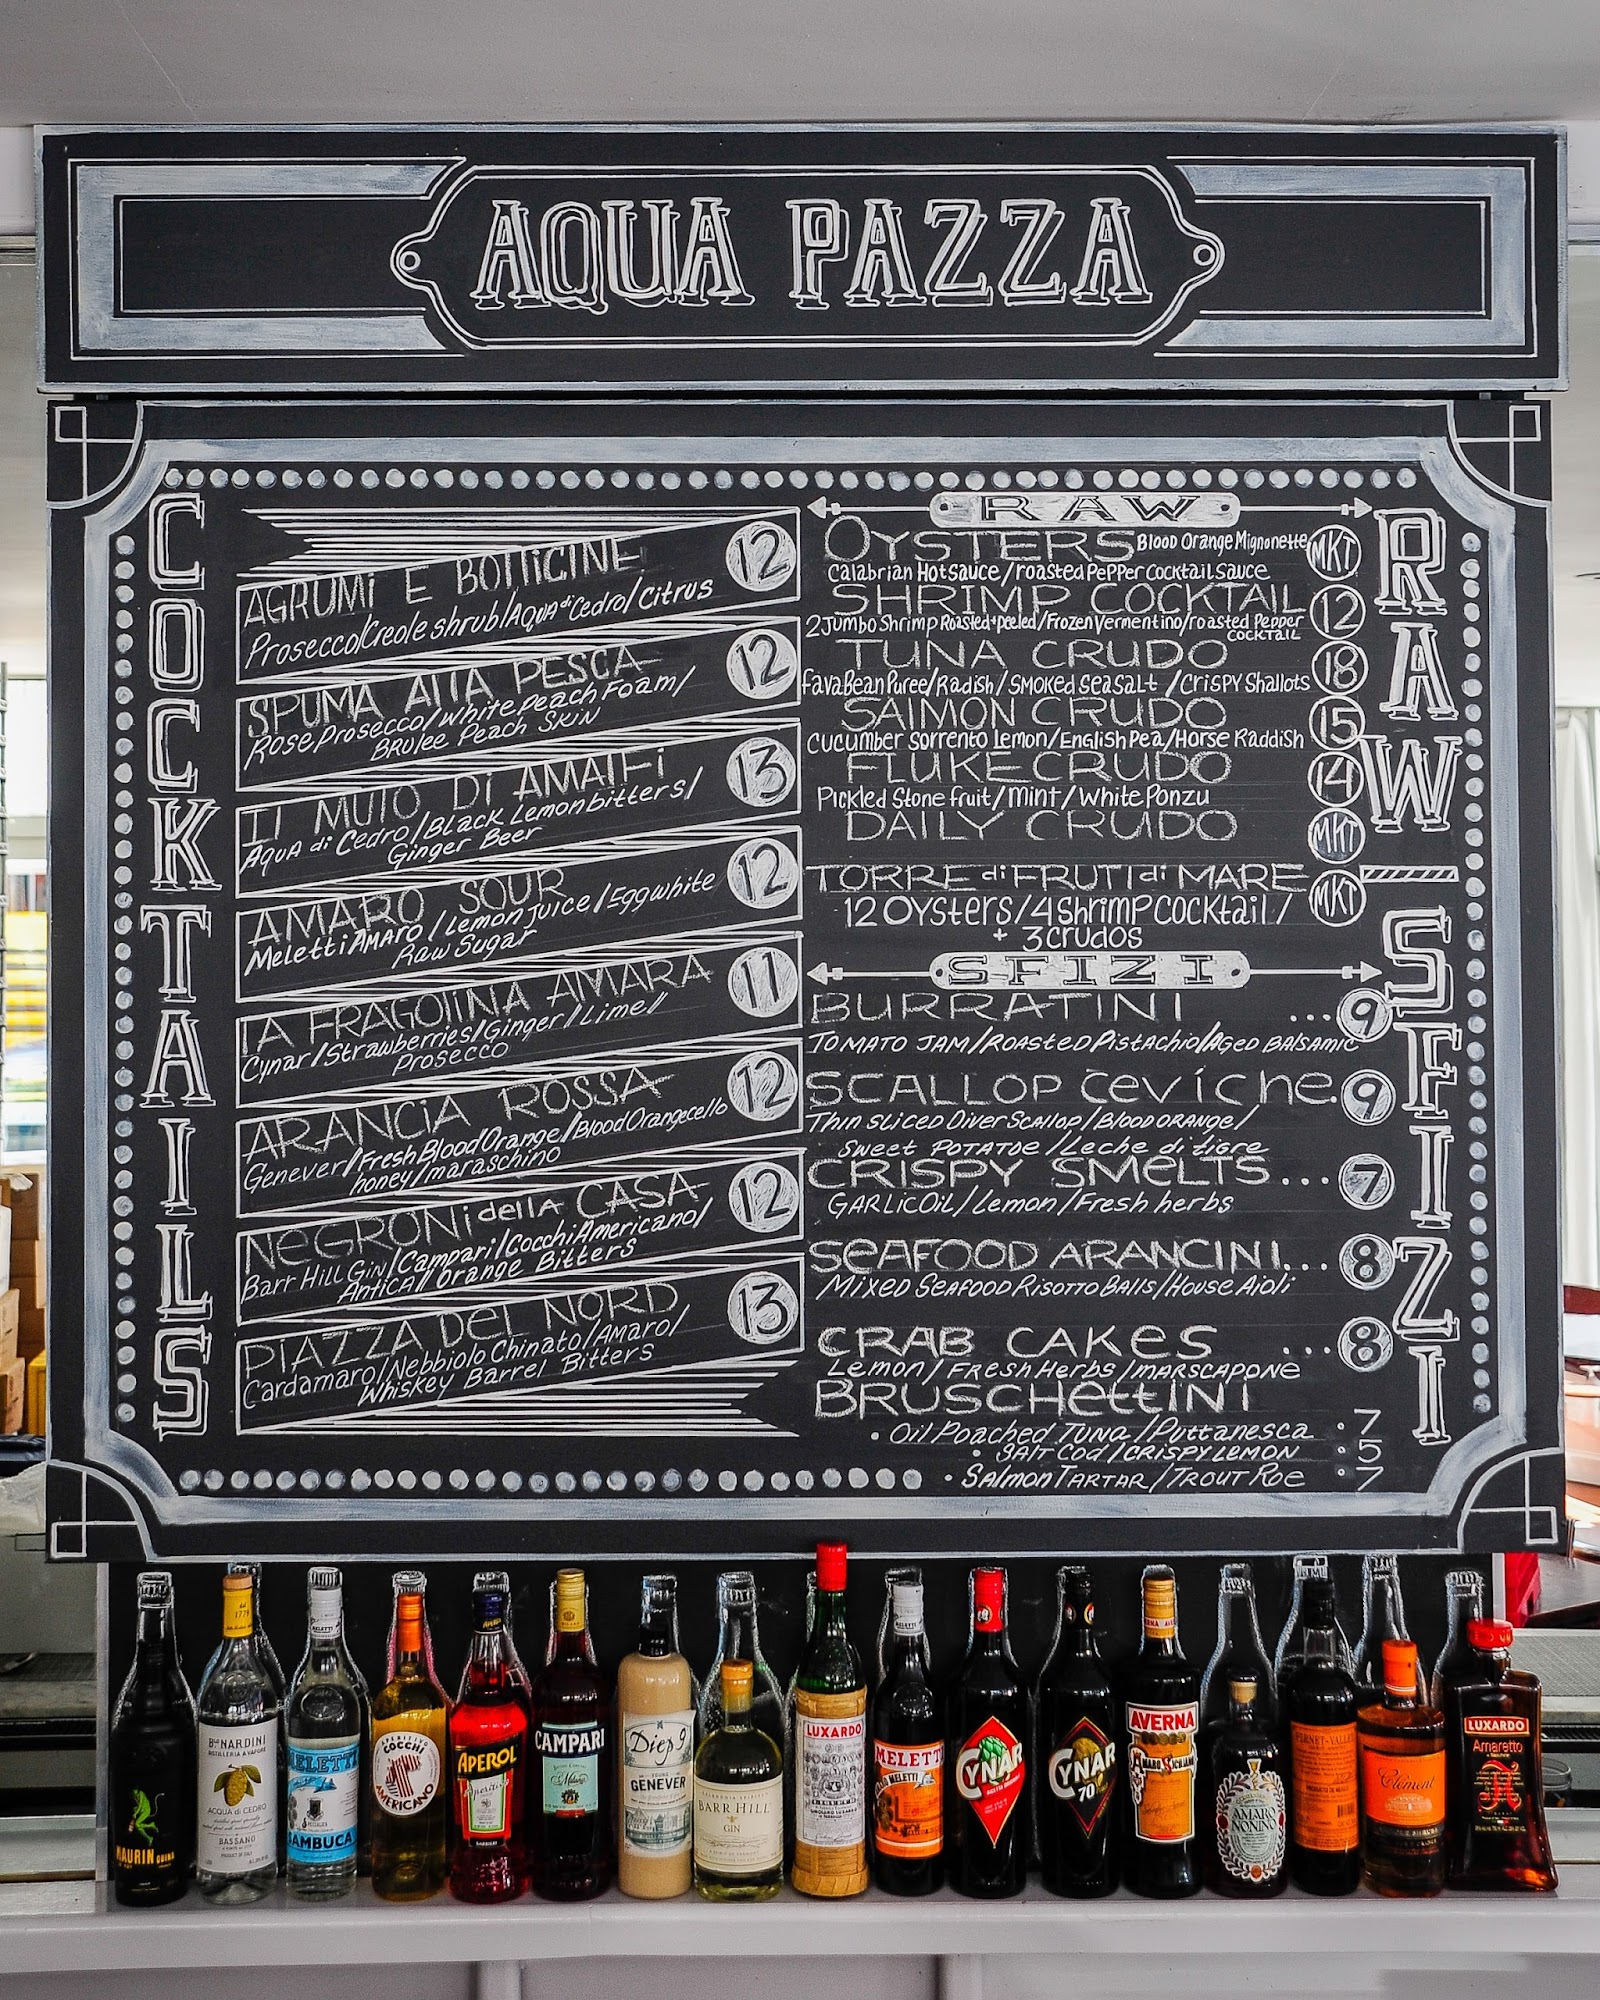 AQUA PAZZA
COCKTAILS
AGRUMI E BOLLICINE 12
Prosecco/Creole shrub/AQUA di Cedro/Citrus
SPUMA ALLA PESCA 12
Rose Prosecco/White Peach Foam/
BRulee Peach SKIN
Il MUlO Di AMAlFi 13
AquA di Cedro/Black Lemon bitters/
Ginger Beer
AMARO SOUR 12
Meletti AMARO/Lemon Juice/Egg white
Raw Sugar
lA FRAGOlINA AMARA 11
Cynar/Strawberries/Ginger/Lime/
Prosecco
ARANCiA ROSSA 12
Genever/Fresh Blood Orange/Blood Orangecello
honey/maraschino
NeGRONi della CASA 12
Barr Hill Gin/Campari/Cocchi Americano/
AnticA/Orange Bitters
PIAZZA Del NORD 13
Cardamaro/Nebbiolo Chinato/Amaro/
Whiskey Barrel Bitters
RAW - SFIZI
RAW
OYSTERS Blood Orange Mignonette MKT
Calabrian Hot Sauce/roasted PePPer Cocktail Sauce
SHRIMP COCKTAIL 12
2 Jumbo Shrimp Roasted + peeled/Frozen Vermentino/roasted Pepper
COCKTAIL
TUNA CRUDO 18
Fava Bean Puree/Radish/SMOKed Sea Salt/CriSPY Shallots
SAlMON CRUDO 15
Cucumber Sorrento Lemon/English Pea/Horse Raddish
FLUKE CRUDO 14
Pickled Stone fruit/Mint/White Ponzu
DAILY CRUDO MKT
TORRE di FRUTI di MARE MKT
12 Oysters/4 Shrimp Cocktail/
+ 3 crudos
SFIZI
BURRATINI ... 9
TOMATO JAM/ROASTED Pistachio/Aged BAlSAMIC
SCALLOP Ceviche. 9
Thin Sliced Diver Scallop/Blood orange/
Sweet POTATOe/Leche di tigre
CRISPY SMeLTS... 7
GARLic Oil/Lemon/Fresh herbs
SeAFOOD ARANCINI... 8
Mixed Seafood Risotto Balls/House Aioli
CRAB CAKeS ... 8
Lemon/FResh Herbs/MARSCAPONE
BRUSCHettINI
• Oil Poached Tuna/Puttanesca • 7
• SAlT Cod/CRISPY LEMON • 5
• Salmon TARTAR/TROUT Roe • 7
MAURIN QUINA
NARDINI
ACQUA di CEDRO
BASSANO
MELETTI
SAMBUCA
COCCHI
AMERICANO
APEROL
CAMPARI
Diep 9
GENEVER
BARR HILL
GIN
LUXARDO
MELETTI
CYNAR
CYNAR
70
AVERNA
AMARO SICILIANO
AMARO
NONINO
Clément
LUXARDO
Amaretto